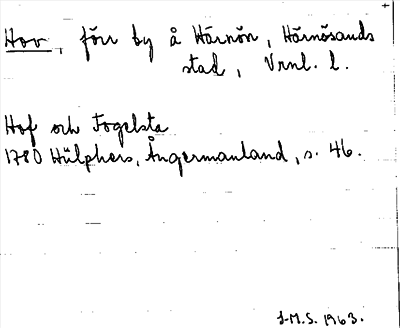 Hov, förr by å Härnön, Härnösands
stad, Vrnl. l.
Hof och Fogelsta
1780 Hülphers, Ångermanland, s. 46.
J-M.S. 1963.